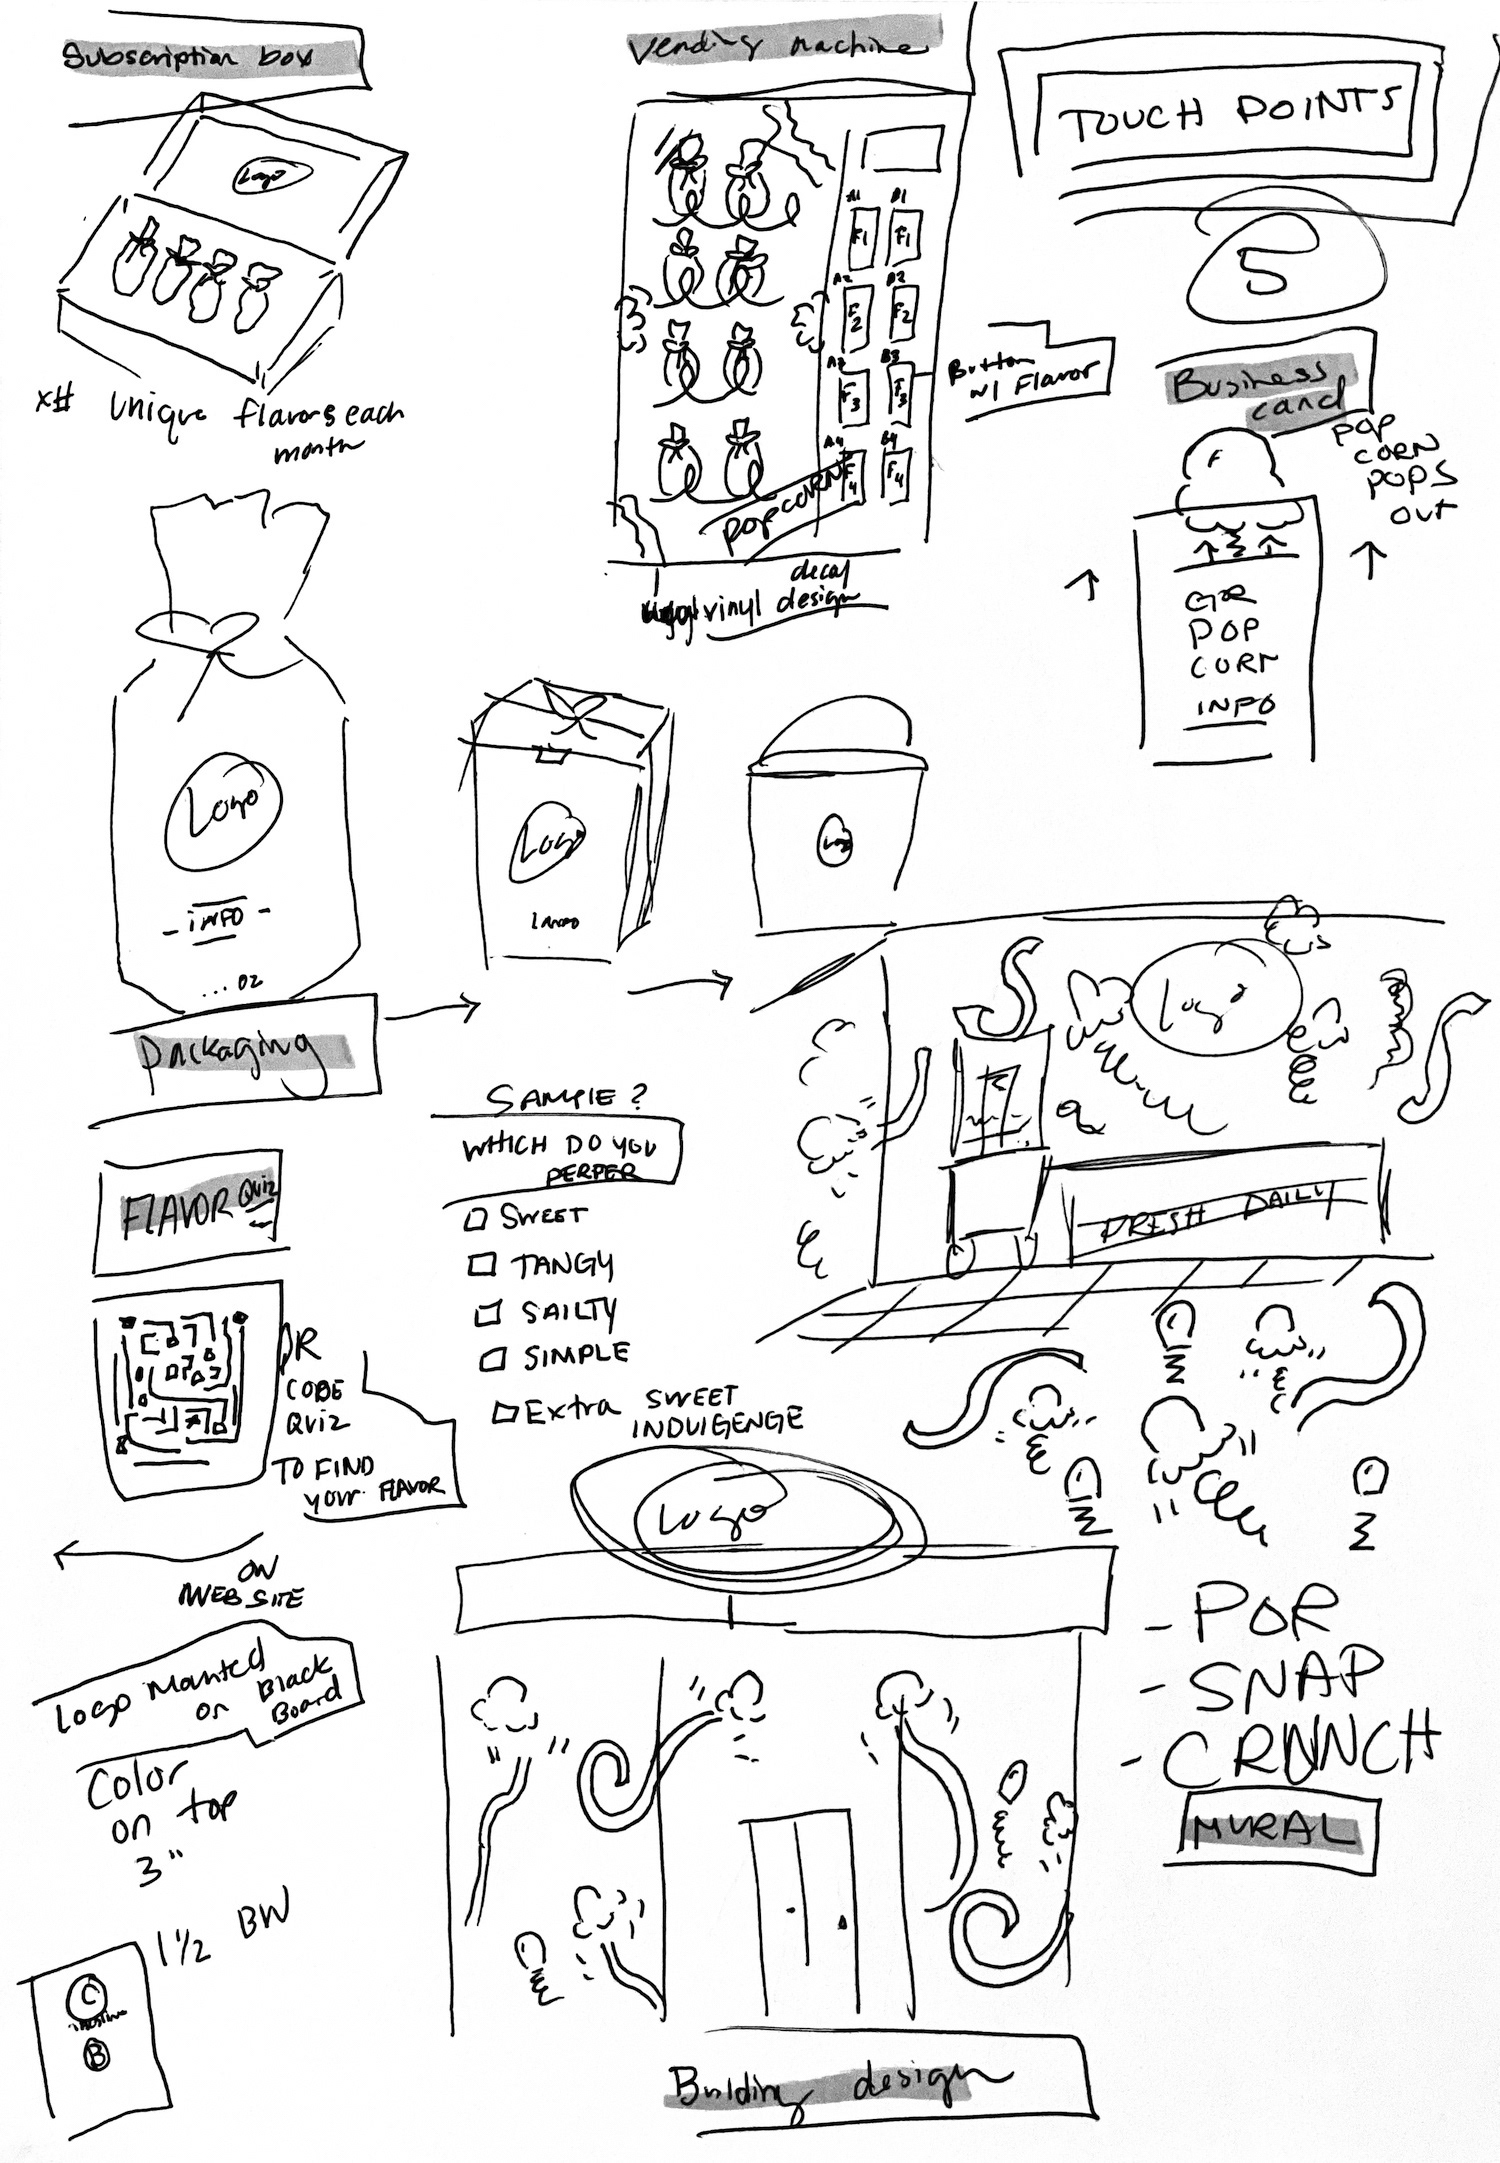 Subscription box
Logo
x# Unique flavors each
month
Vending machine
A1 B1
F1 F1
A2 B2
F2 F2
A3 B3
F3 F3
A4 B4
F4 F4
POPCORN
Button
w/ Flavor
decal
vinyl design
TOUCH POINTS
5
Business
card
POP
CORN
POPS
OUT
F
GR
POP
CORN
INFO
Logo
- INFO -
... OZ
Logo
INFO
Logo
Packaging
FLAVOR Quiz
QR
CODE
QUIZ
TO FIND
your FLAVOR
ON
WEBSITE
SAMPLE ?
WHICH DO YOU
PERFER
SWEET
TANGY
SAILTY
SIMPLE
Extra SWEET
INDULGENGE
Logo
FRESH DAILY
- POP
- SNAP
- CRUNCH
MURAL
Logo
Logo Mounted
on Black
Board
Color
on top
3"
1 1/2 BW
C
B
Building design